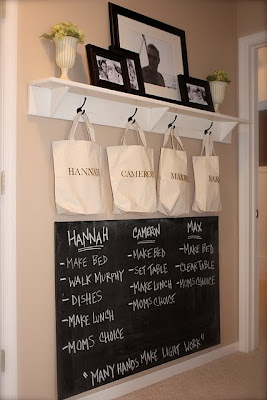 HANNAH
CAMERON
MAX
HANNAH
-MAKE BED
-WALK MURPHY
-DISHES
-MAKE LUNCH
-MOMS CHOICE
CAMERON
-MAKE BED
-SET TABLE
-MAKE LUNCH
-MOMS CHOICE
MAX
-MAKE BED
-CLEAR TABLE
-MOMS CHOICE
"MANY HANDS MAKE LIGHT WORK"